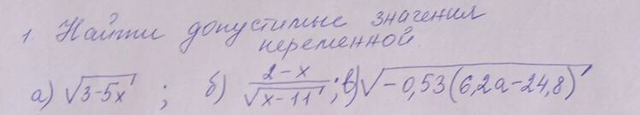 1. Найти допустимые значения
переменной.
а) √(3-5x) ; б) (2-x)/√(x-11) ; в) √(-0,53(6,2a-24,8))